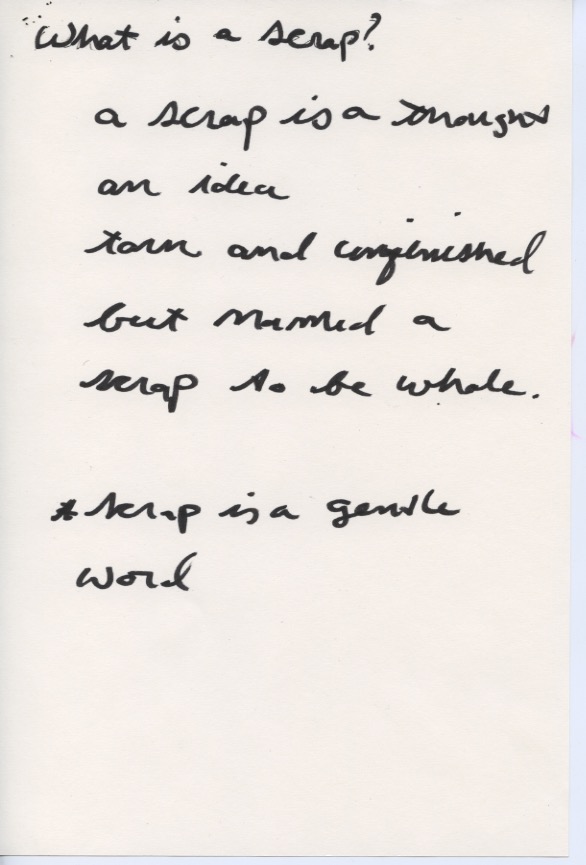 What is a scrap?
a scrap is a thought
an idea
torn and unfinished
but named a
scrap to be whole.
*scrap is a gentle
word